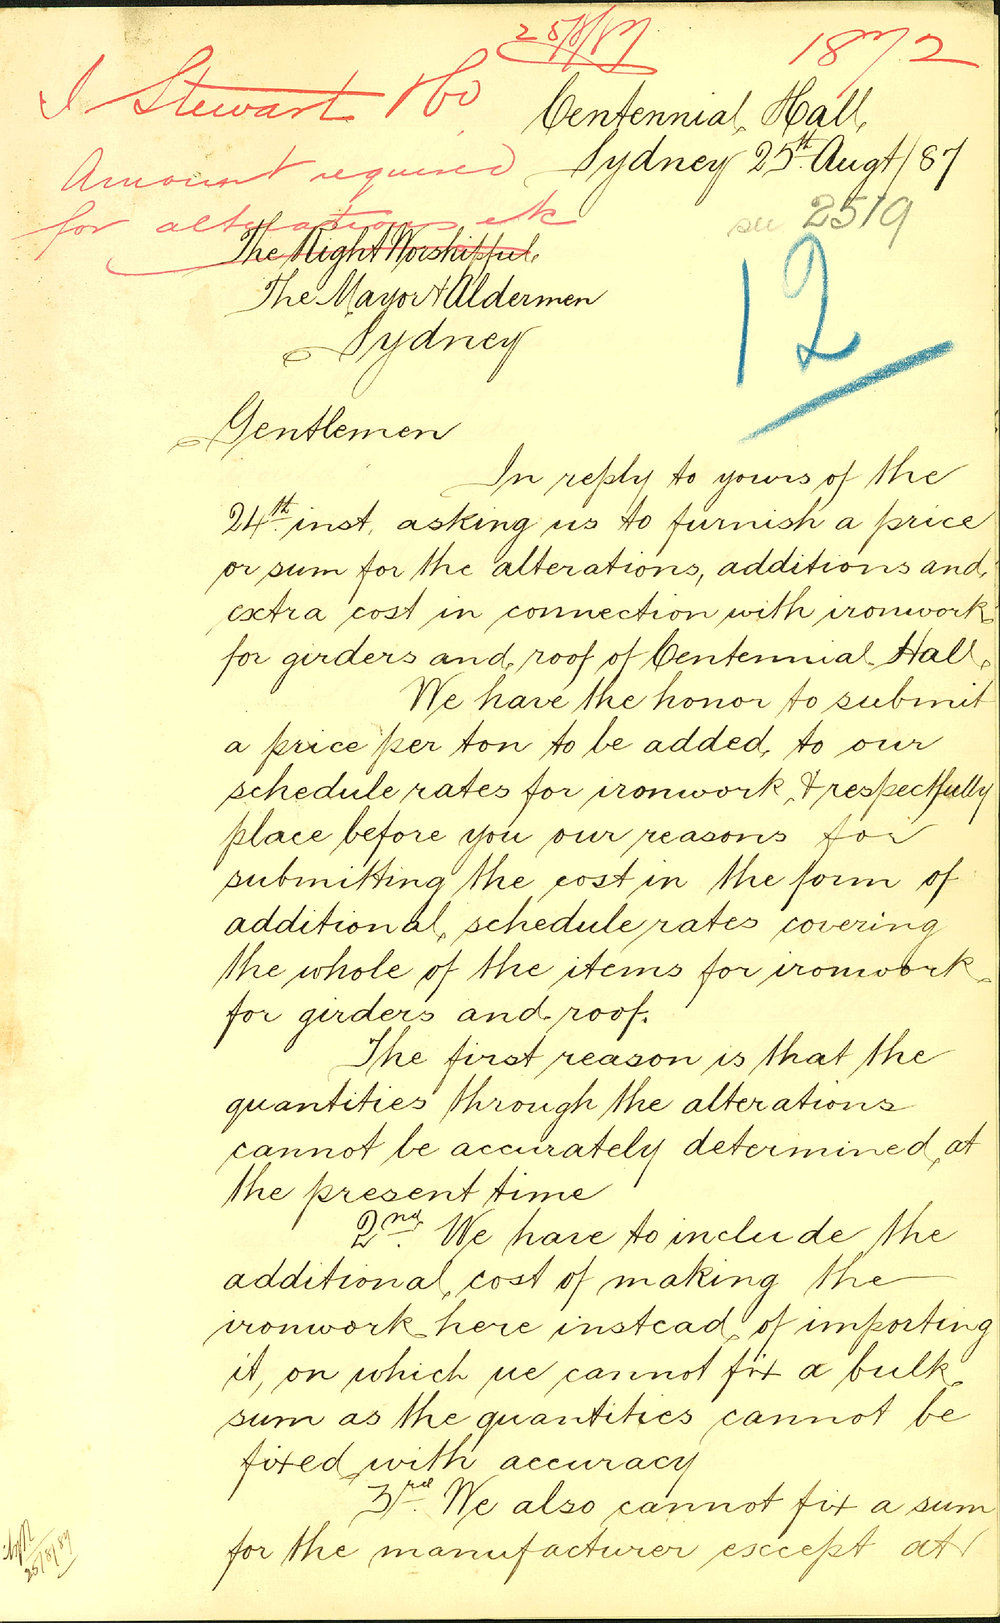 25/8/87
1872
J Stewart & Co
Amount required
for alterations etc
Centennial Hall,
Sydney 25th Augt/87
see 2519
12
The Right Worshipful,
The Mayor & Aldermen
Sydney
Gentlemen
In reply to yours of the
24th inst, asking us to furnish a price
or sum for the alterations, additions and
extra cost in connection with ironwork
for girders and roof of Centennial Hall,
We have the honor to submit
a price per ton to be added, to our
schedule rates for ironwork, & respectfully
place before you our reasons for
submitting the cost in the form of
additional schedule rates covering
the whole of the items for ironwork
for girders and roof.
The first reason is that the
quantities through the alterations
cannot be accurately determined at
the present time
2nd. We have to include the
additional cost of making the
ironwork here instead of importing
it, on which we cannot fix a bulk
sum as the quantities cannot be
fixed with accuracy
3rd We also cannot fix a sum
for the manufacturer except at
25/8/87